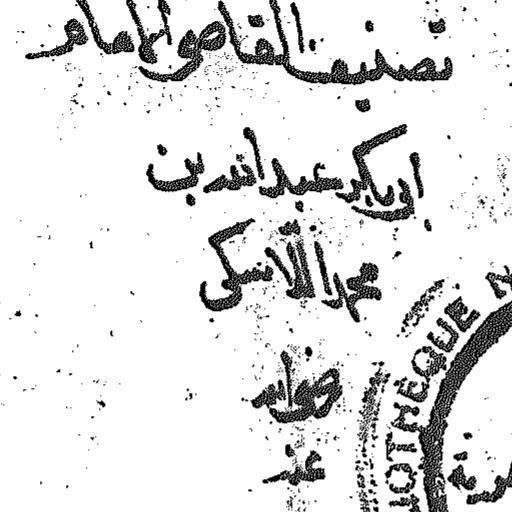 تصنيف القاضي الإمام
ابو بكر عبد الله بن
محمد
رضي الله
عنه
OTHÈQUE N